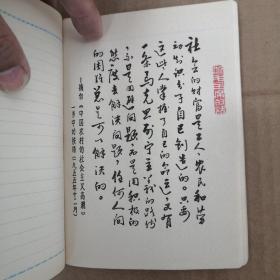 社会的财富是工人、农民和劳
动知识分子自己创造的。只要
这些人掌握了自己的命运，又有
一条马克思列宁主义的路线，
不是回避问题，而是用积极的
态度去解决问题，任何人间
的困难总是可以解决的。
—摘自《中国农村的社会主义高潮》
一书中的按语（一九五五年十二月）